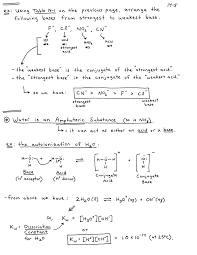 19-8
ex: Using Table on the previous page, arrange the
following bases from strongest to weakest base.
F⁻, Cl⁻, NO₂⁻, CN⁻
HF HCl HNO₂ HCN
strongest acid weakest acid
- the "weakest base" is the conjugate of the "strongest acid".
- the "strongest base" is the conjugate of the "weakest acid."
so we have: CN⁻ > NO₂⁻ > F⁻ > Cl⁻
strongest base weakest base
Water is an Amphoteric Substance (so is NH₃).
it can act as either an acid or a base.
ex: the autoionization of H₂O:
Base (H⁺ acceptor) Acid (H⁺ donor) Conjugate Acid Conjugate Base
- from above we have: 2H₂O(l) ⇌ H₃O⁺(aq) + OH⁻(aq)
or, Kw = [H₃O⁺][OH⁻]
Kw: Dissociation Constant for H₂O
or
Kw = [H⁺][OH⁻] = 1.0 × 10⁻¹⁴ (at 25°C)